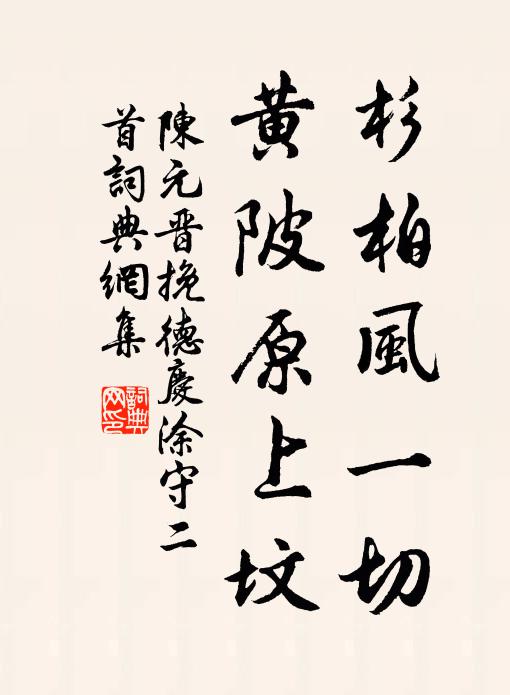 杉柏風一切
黃陂原上墳
陳元晋挽德慶涂守二
首詞典網集
詞典网印